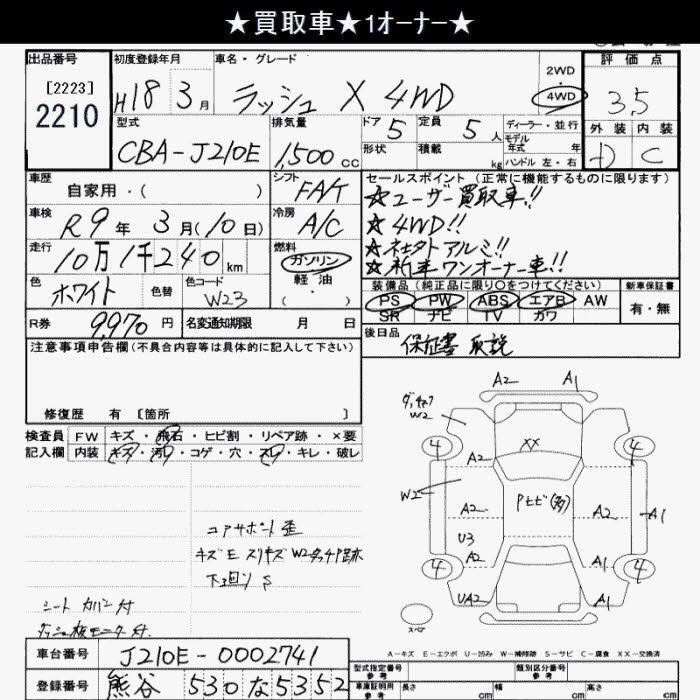 ★買取車★1オーナー★
出品番号 初度登録年月 車名・グレード 2WD・4WD 評価点
[2223]
2210 H18年3月 ラッシュ X 4WD 3.5
型式 排気量 ドア 5 定員 5人 ディーラー・並行 外装 内装
CBA-J210E 1,500cc 形状 積載 kg モデル年式 年 D C
ハンドル 左・右
車歴 シフト セールスポイント (正常に機能するものに限ります)
自家用・( ) FA/T ☆ユーザー買取車!!
車検 R9年3月(10日) 冷房 A/C ☆4WD!!
走行 10万1千240km 燃料 ガソリン 軽油 ( ) ☆社外アルミ!!
☆新車ワンオーナー車!!
色 ホワイト 色替 色コード W23 装備品(純正品に限り○をつけてください) 新車保証書
PS PW ABS エアB AW 有・無
SR ナビ TV カワ
R券 9,970円 名変通知期限 月 日 後日品
保証書 取説
注意事項申告欄(不具合内容等は具体的に記入して下さい)
修復歴 有 〔箇所 〕
検査員 FW キズ・飛石・ヒビ割・リペア跡・×要
記入欄 内装 キズ・汚レ・コゲ・穴・スレ・キレ・破レ
コアサポート歪
キズE スリキズ W2タッチP跡
下廻り S
シート カバー付
ダッシュ板モニター付.
A2 A1
W2
4 XX 4
A2
W2 Pヒビ(多)
A2 A2 A1
U3
A2 A1
4 4
UA2 A1
スペア
A-キズ E-エクボ U-凹み W-補修跡 S-サビ C-腐食 XX-交換済
車台番号 J210E-0002741 型式指定番号 類別区分番号
参考 参考
登録番号 熊谷 530 な 5352 車庫証明用 長さ cm 幅 cm 高さ cm
参考